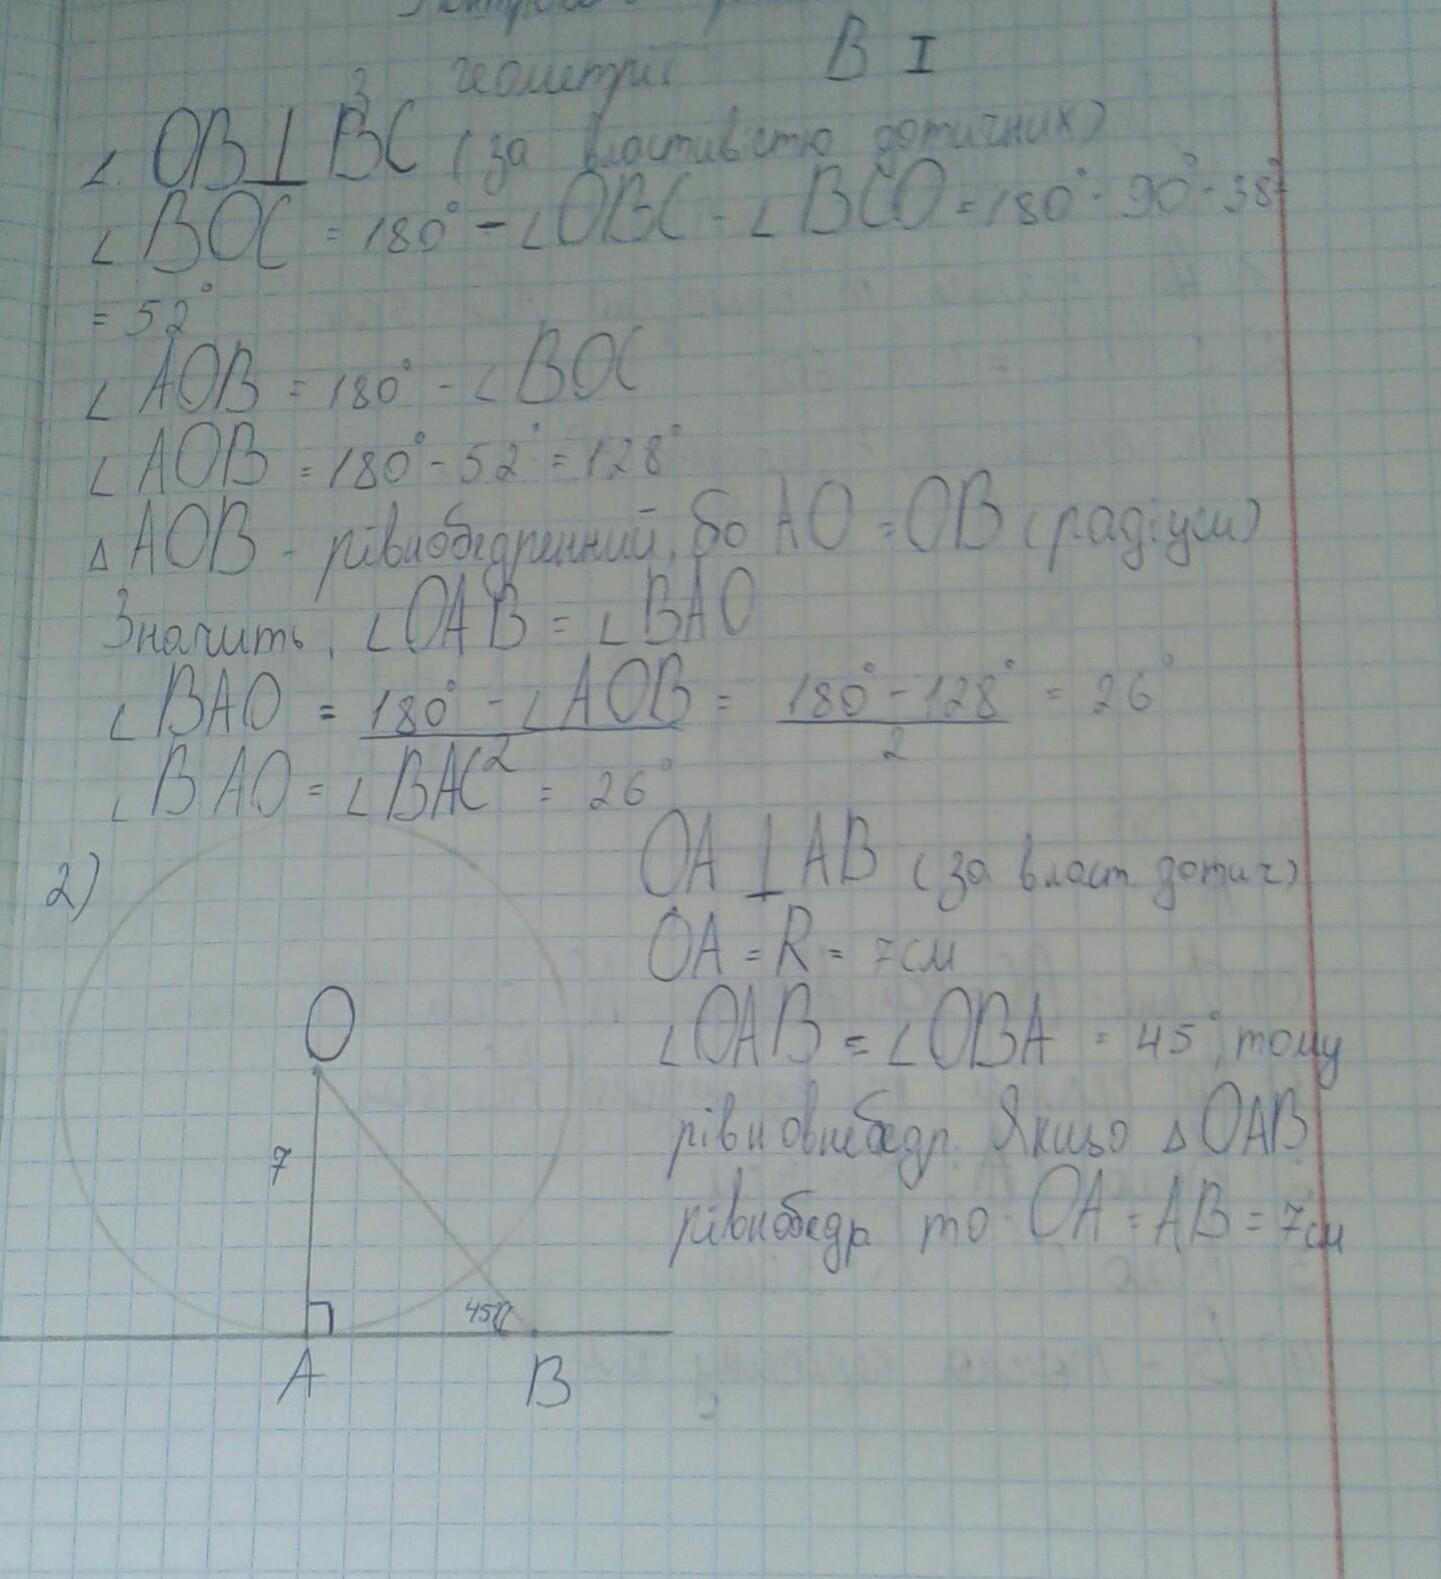 з геометрії В I
1. OB⊥BC (за властивістю дотичних)
∠BOC = 180° - ∠OBC - ∠BCO = 180° - 90° - 38° =
= 52°
∠AOB = 180° - ∠BOC
∠AOB = 180° - 52° = 128°
△AOB - рівнобедренний, бо AO = OB (радіуси)
Значить, ∠OAB = ∠BAO
∠BAO = (180° - ∠AOB)/2 = (180° - 128°)/2 = 26°
∠BAO = ∠BAC = 26°
2)
OA ⊥ AB (за власт. дотич)
OA = R = 7см
∠OAB = ∠OBA = 45°, тому
Якщо △OAB
рівнобедр то OA = AB = 7см
O
7
45°
A B